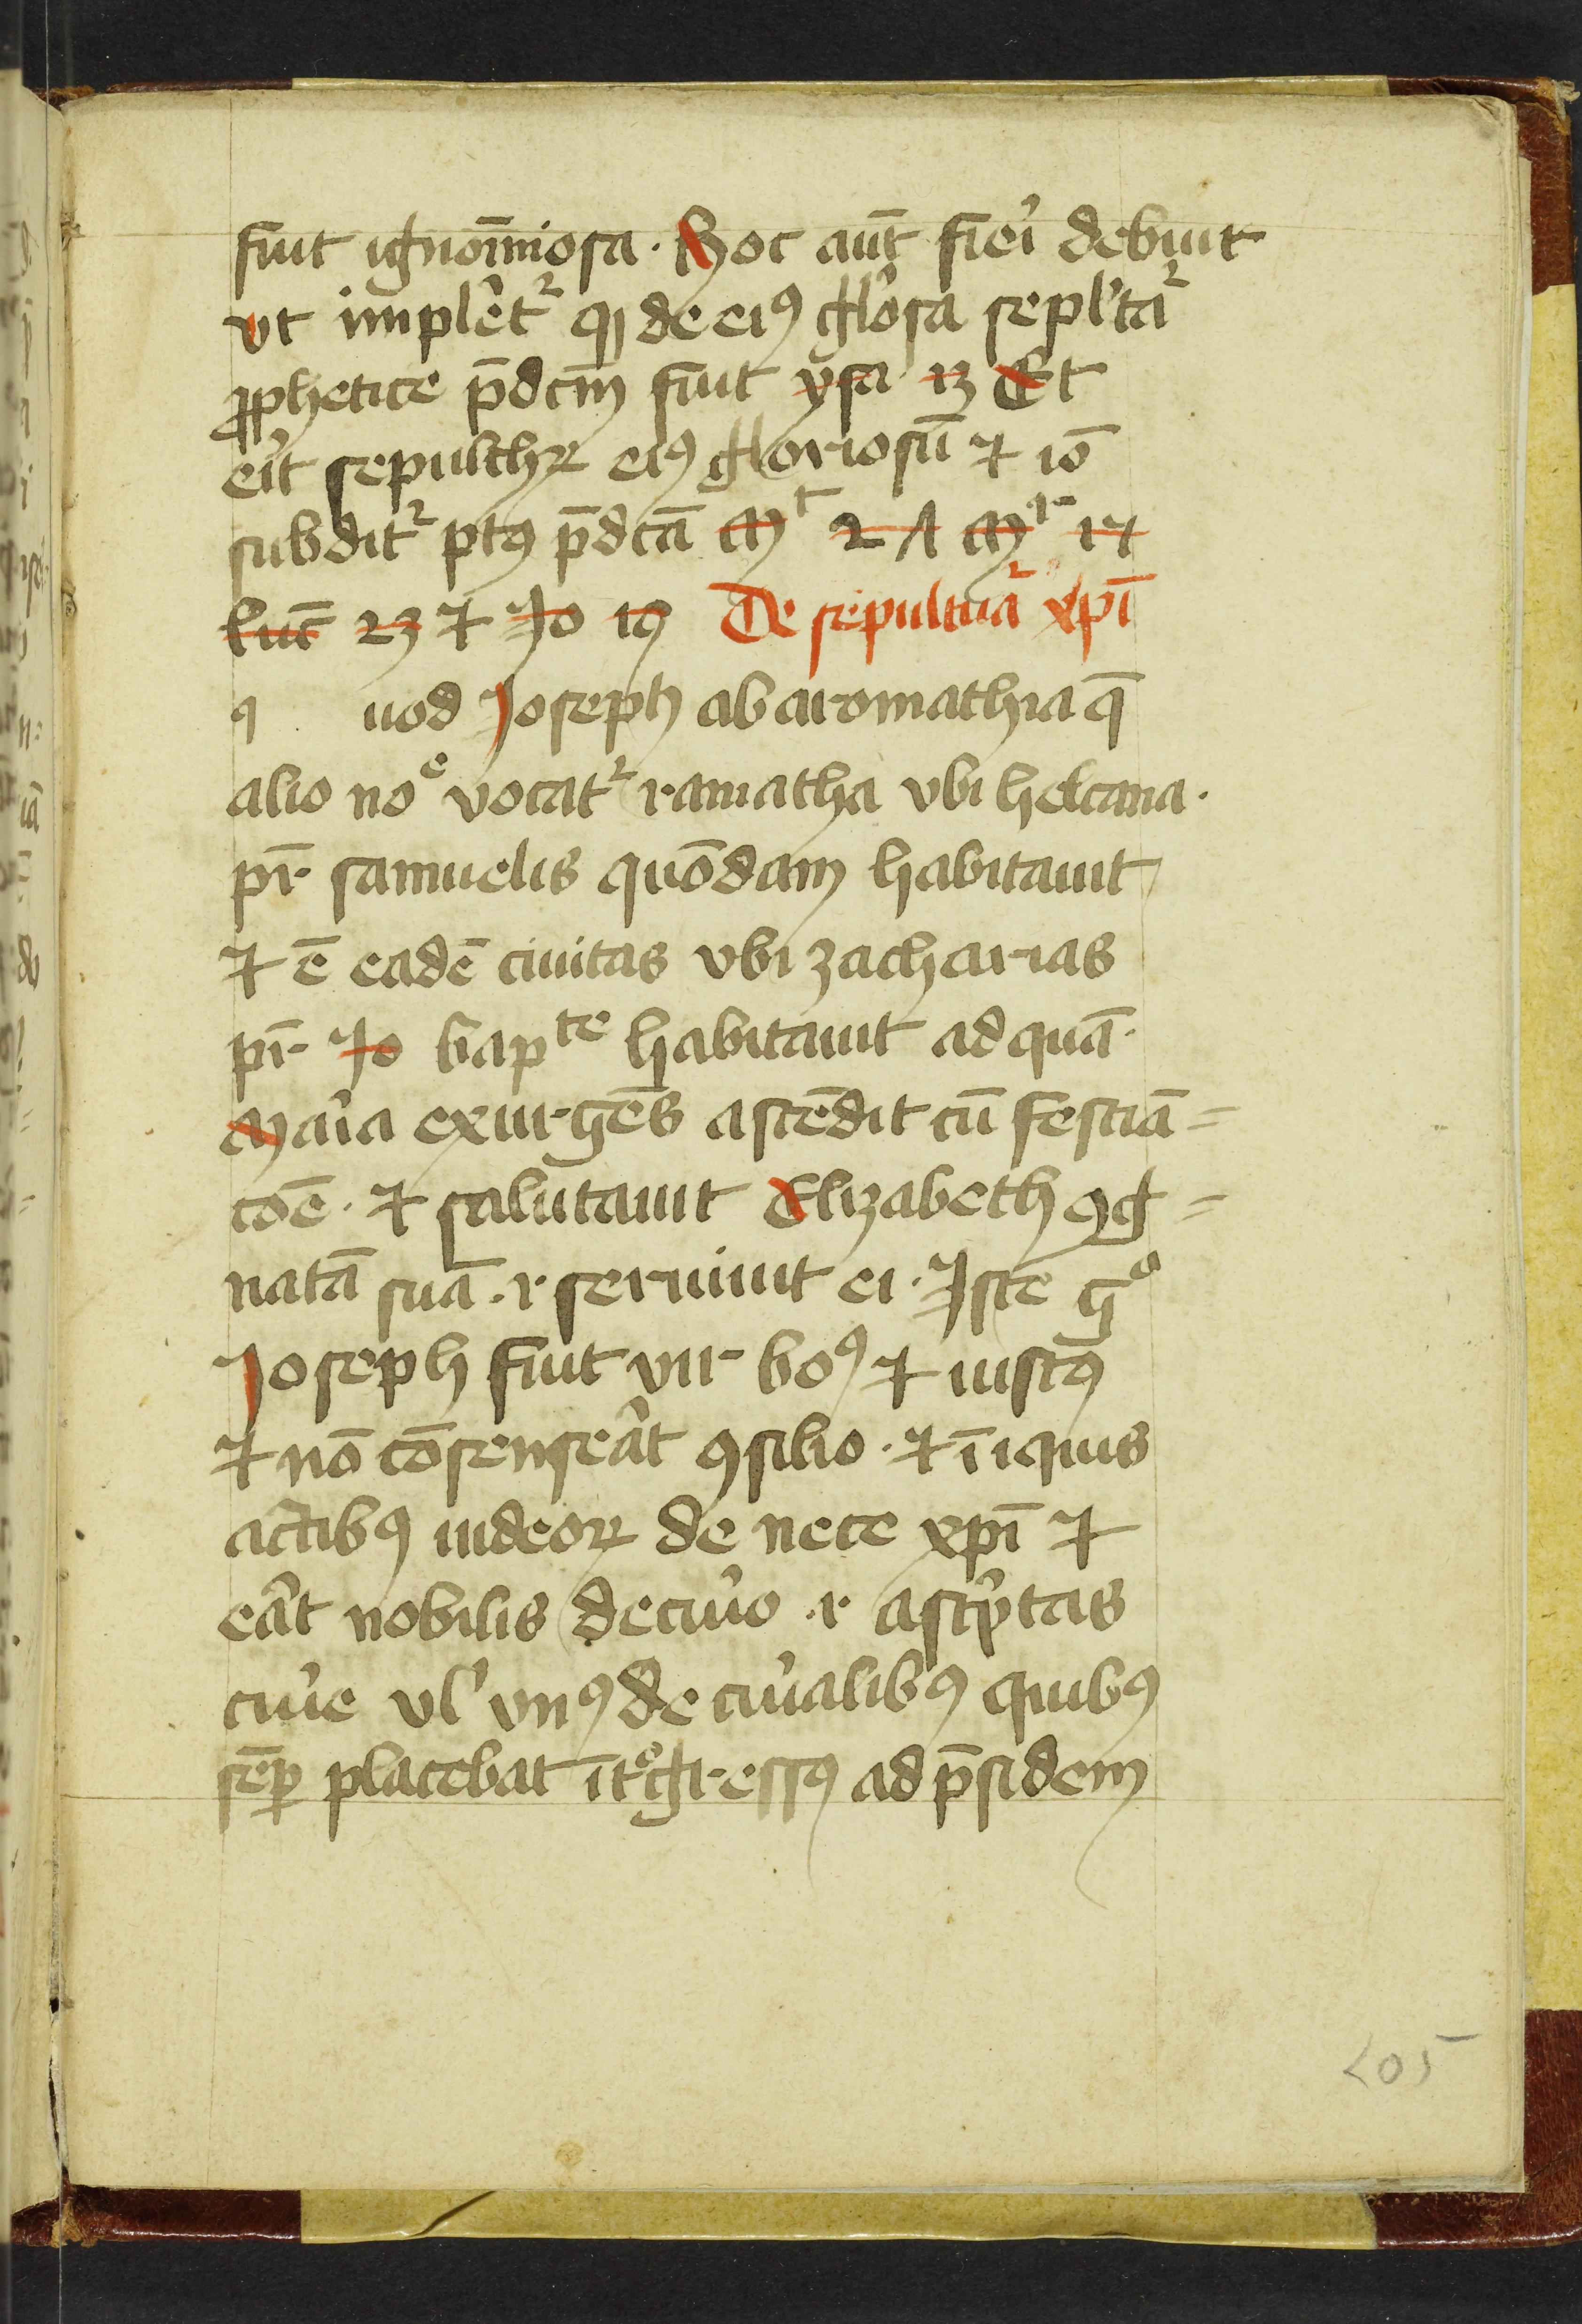 fuit ignom̄iosa. Hoc aūt fieı̉ debuit
vt implet᷑ qꝫ de eiꝰ gl'osa sepl'ta᷑
ꝓphetice p̄dcm̄ fuit ysa 13 Et
eı̉t sepulchꝝ eiꝰ gloriosū ⁊ iō
subdit᷑ ptꝰ p̄dcā Mͭ 2Λ Mʳ 1ꝗ
luc̄ 23 ⁊ Jo 19 De sepultua᷑ xp̄i
q uod Joseph ab aromathia q̄
alio noͤ vocat᷑ ramatha vbi helcana.
pr̄ samuelis quōdam habitauit
⁊ ē eadē ciuitas vbi zacharias
pr̄ Jo bapᵗᵉ habitauit ad quā.
Maı̉a exurgēs ascēdit cū festiā=
coē. ⁊ salutauit Elizabeth ꝯg=
natā suā. ⁊ seruiuit ei. Iste gͦ
Joseph fuit vir boꝰ ⁊ iustꝰ
⁊ nō cōsenseat̉ ꝯsilio. ⁊ īiquis
actibꝰ iudeoꝝ de nece xp̄i ⁊
eat̉ nobilis decuı̉o ⁊ ascp̉tas
cuı̉e vl' vnꝰ de cuı̉alibꝰ quibꝰ
sēꝑ placebat ītͦgressꝰ ad p̄sidem
205